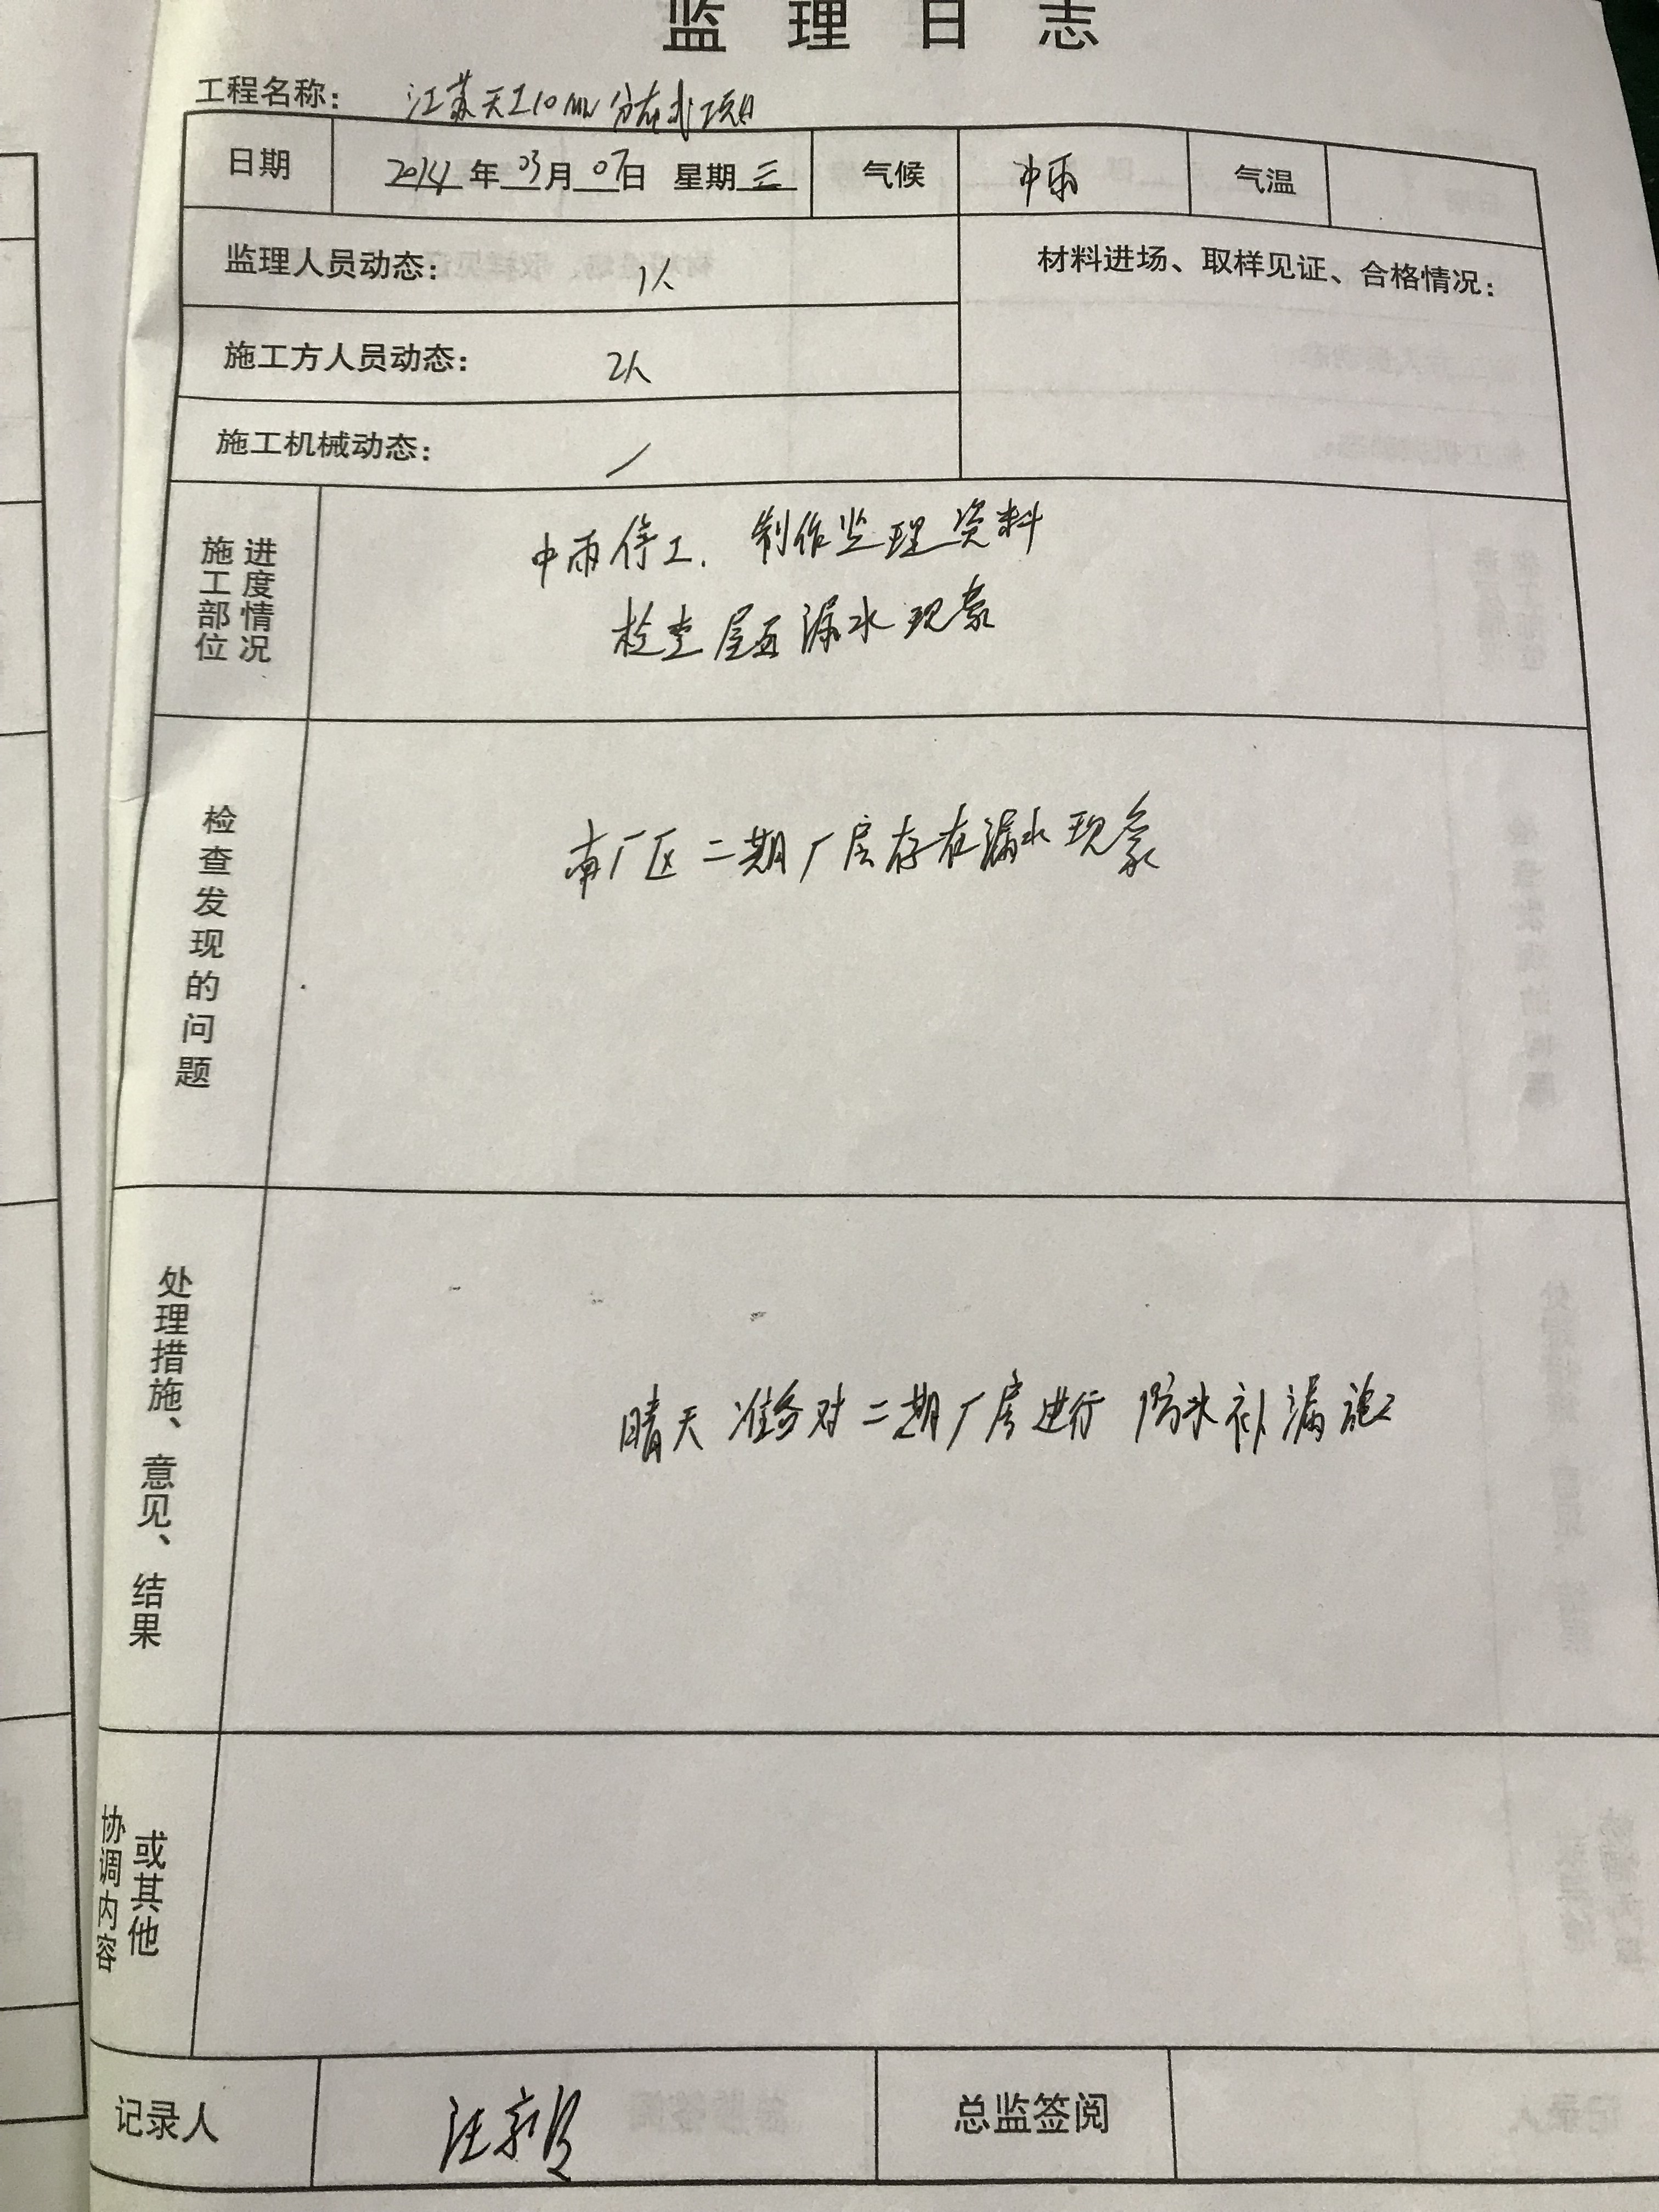 监理日志
工程名称： 江苏天工10MW分布式项目
日期 2014年03月07日 星期三 气候 中雨 气温
监理人员动态： 1人
材料进场、取样见证、合格情况：
施工方人员动态： 2人
施工机械动态： /
施工部位
进度情况
中雨停工. 制作监理资料
检查屋面漏水现象
检查发现的问题
南厂区二期厂房存在漏水现象
处理措施、意见、结果
晴天准备对二期厂房进行防水补漏施工
协调内容
或其他
记录人 汪 总监签阅